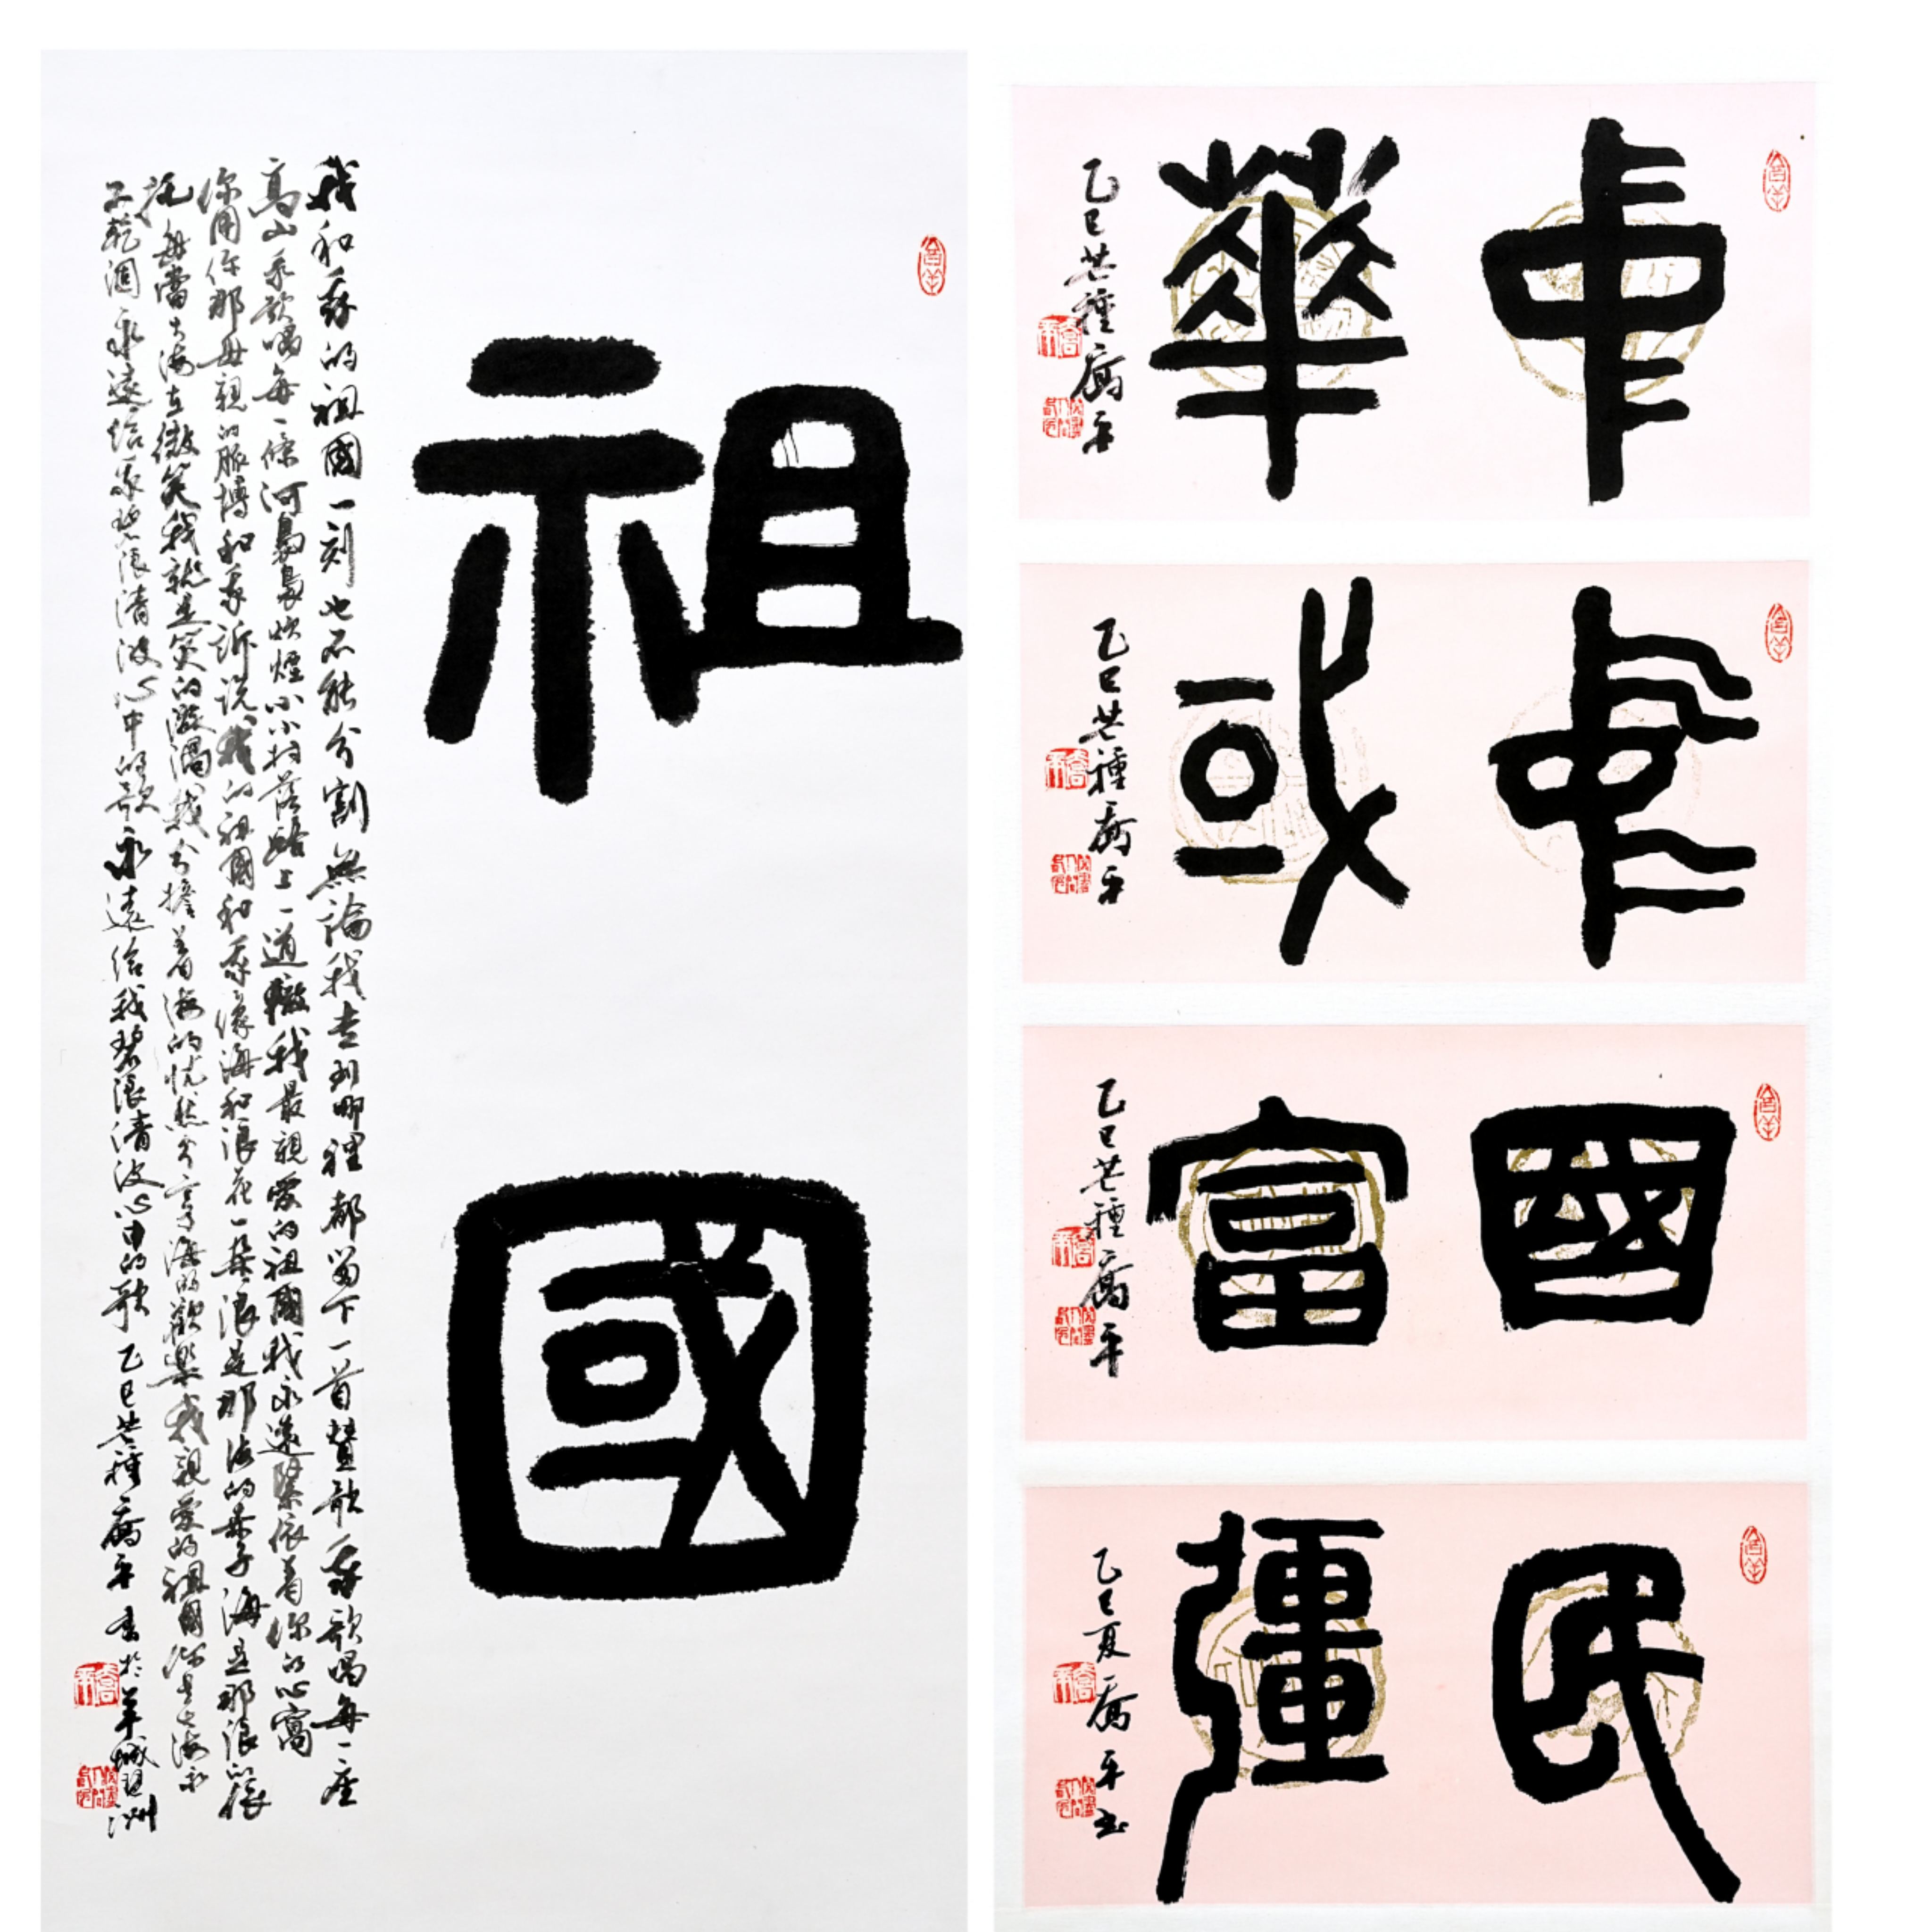 祖國
我和我的祖國一刻也不能分割無論我走到哪裡都留下一首贊歌我歌唱每一座
高山我歌唱每一條河裊裊炊煙小小村落路上一道轍我最親愛的祖國我永遠緊依着你的心窩
你用你那母親的脈搏和我訴説我的祖國和我像海和浪花一朵浪是那海的赤子海是那浪的依
托每當大海在微笑我就是笑的漩渦我分擔着海的憂愁分享海的歡樂我親愛的祖國你是大海永
不乾涸永遠給我碧浪清波心中的歌永遠給我碧浪清波心中的歌乙巳芒種喬平書於羊城琶洲
中華
乙巳芒種喬平
中或
乙巳芒種喬平
國富
乙巳芒種喬平
民彊
乙巳夏喬平書